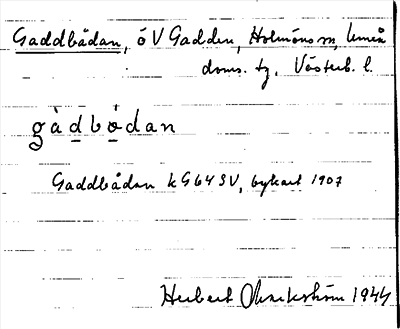 Gaddbådan, ö V Gadden, Holmöns sn, Umeå
doms. tg, Västerb. l.
gàdbǻdan
Gaddbådan k G64 SV, bykart 1907
Herbert 1944